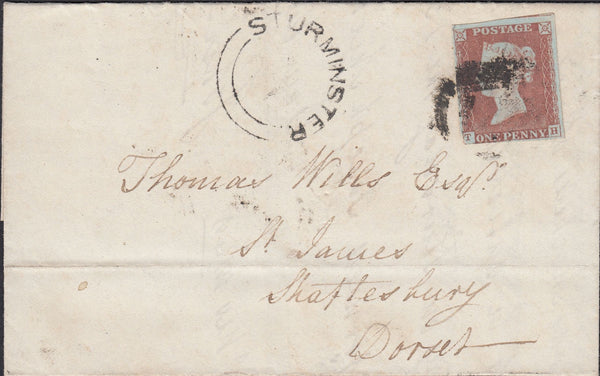 STURMINSTER
POSTAGE
T ONE PENNY H
Thomas Wills Esqr.
St James
Shaftesbury
Dorset